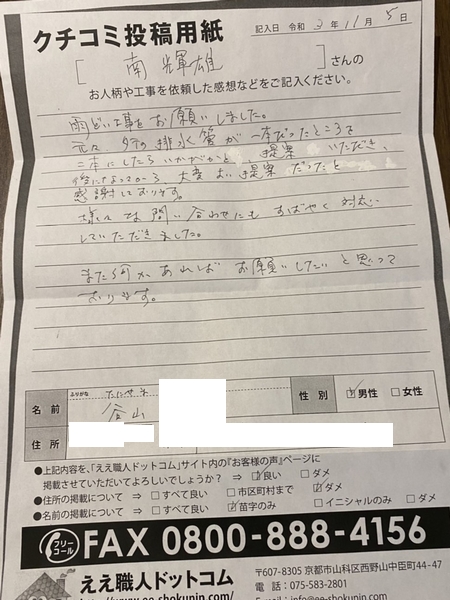 クチコミ投稿用紙
記入日 令和 3 年 11 月 5 日
[ 南 輝雄 ]さんの
お人柄や工事を依頼した感想などをご記入ください。
雨どい工事をお願いしました。
元々 外の排水管が一本だったところを
二本にしたらいかがかと、提案いただき、
後になってから 大変 よい提案だったと
感謝しております。
様々な問い合わせにも すばやく 対応
していただきました。
また何かあれば お願いしたいと思って
おります。
ふりがな
名前 谷山
性別 ☑男性 □女性
住所
●上記内容を、「ええ職人ドットコム」サイト内の『お客様の声』ページに
掲載させていただいてよろしいでしょうか? ⇒ ☑良い □ダメ
●住所の掲載について ⇒ □すべて良い □市区町村まで ☑ダメ
●名前の掲載について ⇒ □すべて良い ☑苗字のみ □イニシャルのみ □ダメ
フリーコール FAX 0800-888-4156
ええ職人ドットコム
〒607-8305 京都市山科区西野山中臣町44-47
電話:075-583-2801
http://www.ee-shokunin.com/